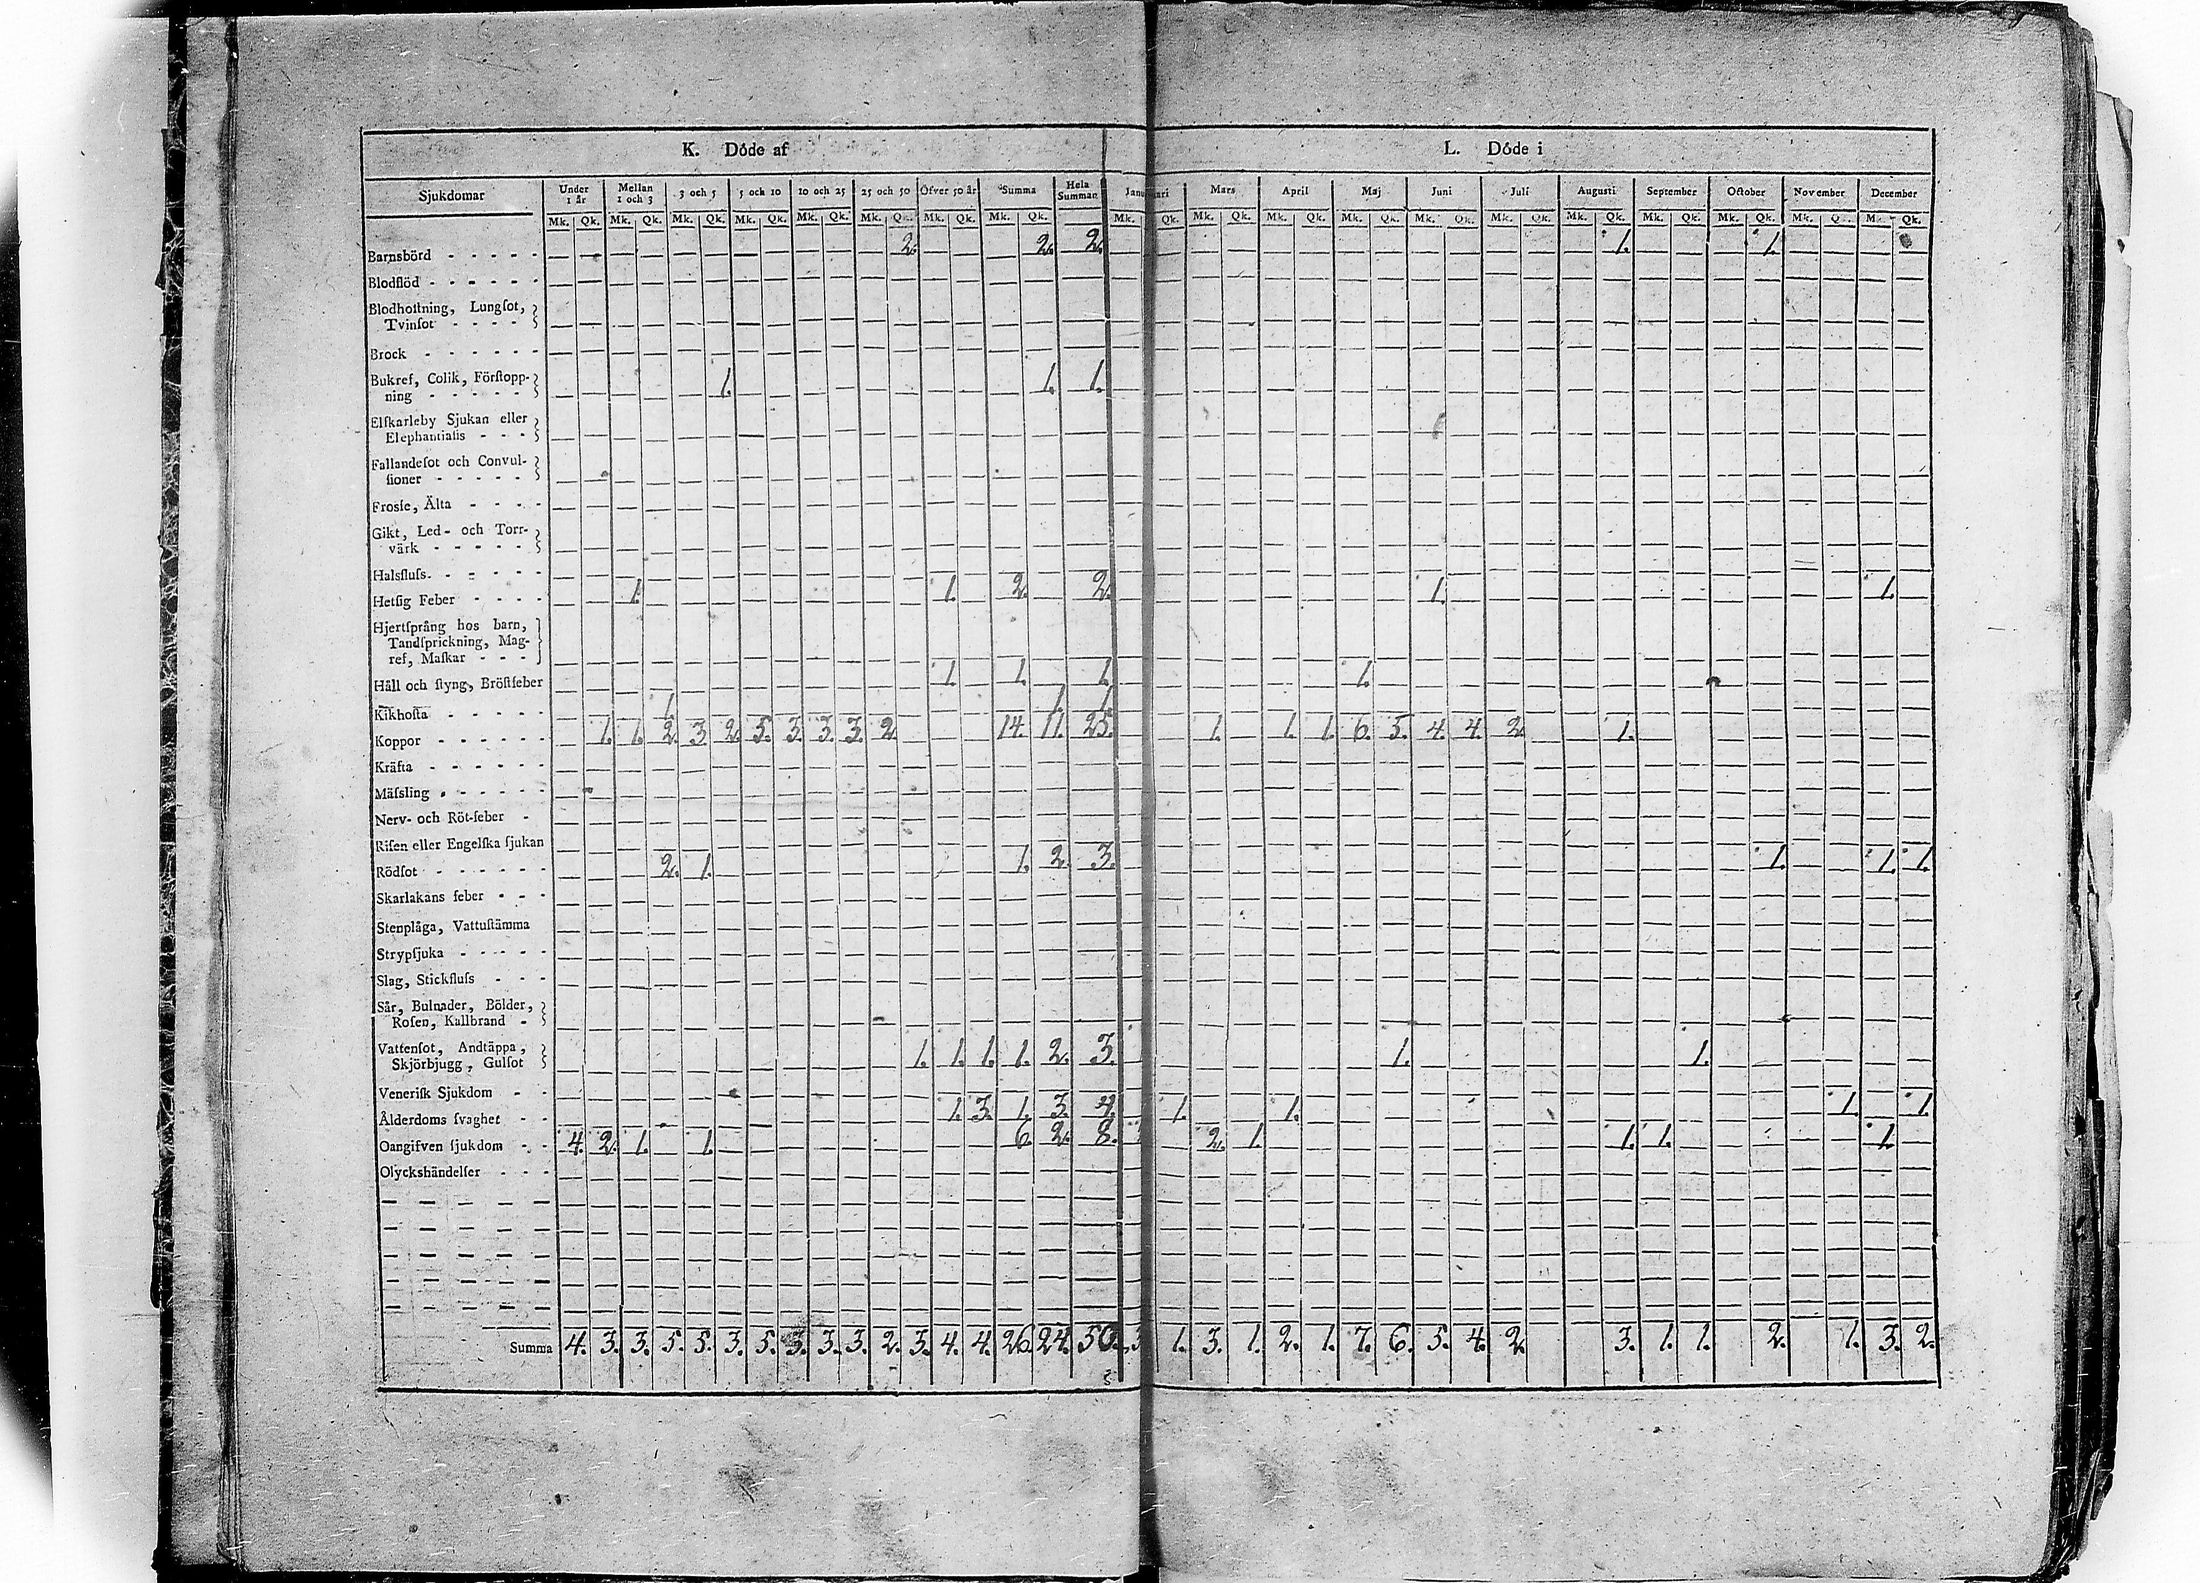 K. Döde af L. Döde i
Sjukdomar Under 1 år Mellan 1 och 3 3 och 5 5 och 10 10 och 25 25 och 50 Öfver 50 år Summa Hela Summan Januari Mars April Maj Juni Juli Augusti September October November December
Mk. Qk. Mk. Qk. Mk. Qk. Mk. Qk. Mk. Qk. Mk. Qk. Mk. Qk. Mk. Qk. Mk. Qk. Mk. Qk. Mk. Qk. Mk. Qk. Mk. Qk. Mk. Qk. Mk. Qk. Mk. Qk. Mk. Qk. Mk. Mk. Qk.
Barnsbörd 2. 2. 2. 1. 1.
Blodflöd
Blodhostning, Lungsot,
Tvinsot
Brock
Bukref, Colik, Förstopp-
ning 1. 1. 1.
Elskarleby Sjukan eller
Elephantiasis
Fallandesot och Convul-
sioner
Frossе, Älta
Gikt, Led- och Torr-
värk
Halsfluss
Hetsig Feber 1. 1. 2. 2. 1. 1.
Hjertsprång hos barn,
Tandsprickning, Mag-
ref, Maskar
Håll och styng, Bröstfeber 1. 1. 1. 1.
Kikhosta 1 1. 1.
Koppor 1. 1. 2. 3. 2. 5. 3. 3. 3. 2. 14. 11. 25. 1. 1. 1. 6. 5. 4. 4. 2. 1.
Kräfta
Mässling
Nerv- och Röt-feber
Risen eller Engelska sjukan
Rödsot 2. 1. 1. 2. 3. 1. 1. 1.
Skarlakans feber
Stenplåga, Vattustämma
Strypsjuka
Slag, Stickfluss
Sår, Bulnader, Bölder,
Rosen, Kallbrand
Vattensot, Andtäppa,
Skjörbjugg, Gulsot 1. 1. 1. 1. 2. 3. 1. 1.
Venerisk Sjukdom
Ålderdoms svaghet 1. 3. 1. 3. 4. 1. 1. 1. 1.
Oangifven sjukdom 4. 2. 1. 1. 6. 2. 8. 2. 1. 1. 1. 1.
Olyckshändelser
Summa 4. 3. 3. 5. 5. 3. 5. 3. 3. 3. 2. 3. 4. 4. 26. 24. 50. 3 1. 3. 1. 2. 1. 7. 6. 5. 4. 2. 3. 1. 1. 2. 1. 3. 2.